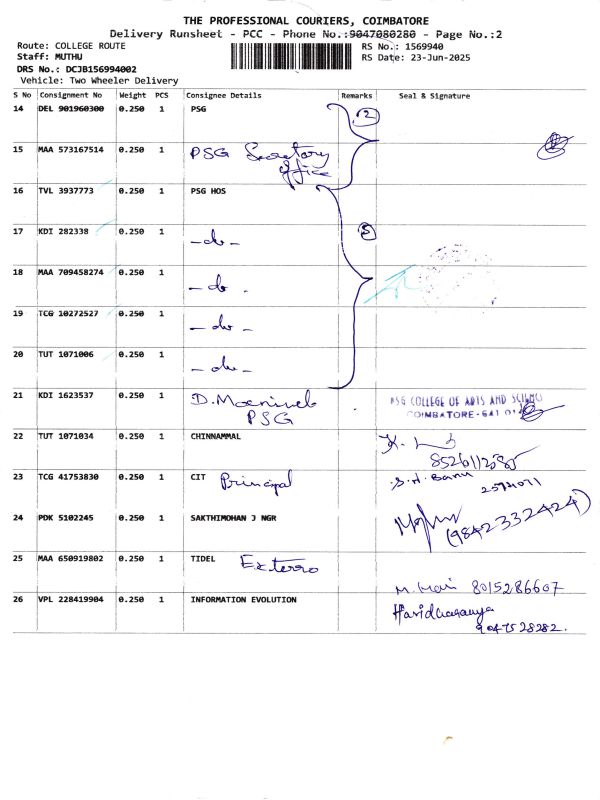 THE PROFESSIONAL COURIERS, COIMBATORE
Delivery Runsheet - PCC - Phone No.:9047080280 - Page No.:2
Route: COLLEGE ROUTE RS No.: 1569940
Staff: MUTHU RS Date: 23-Jun-2025
DRS No.: DCJB156994002
Vehicle: Two Wheeler Delivery
S No Consignment No Weight PCS Consignee Details Remarks Seal & Signature
14 DEL 901960300 0.250 1 PSG 2
15 MAA 573167514 0.250 1 PSG Secretary office
16 TVL 3937773 0.250 1 PSG HOS
17 KDI 282338 0.250 1 -do- 5
18 MAA 709458274 0.250 1 -do-
19 TCG 10272527 0.250 1 -do-
20 TUT 1071006 0.250 1 -do-
21 KDI 1623537 0.250 1 PSG PSG COLLEGE OF ARTS AND SCIENCE
COIMBATORE-641 014
22 TUT 1071034 0.250 1 CHINNAMMAL
23 TCG 41753830 0.250 1 CIT Principal S.H. Banu
24 PDK 5102245 0.250 1 SAKTHIMOHAN J NGR (9842332424)
25 MAA 650919802 0.250 1 TIDEL Exterro
M. Hari 8015286607
26 VPL 228419904 0.250 1 INFORMATION EVOLUTION Haridharanya
9047528282.